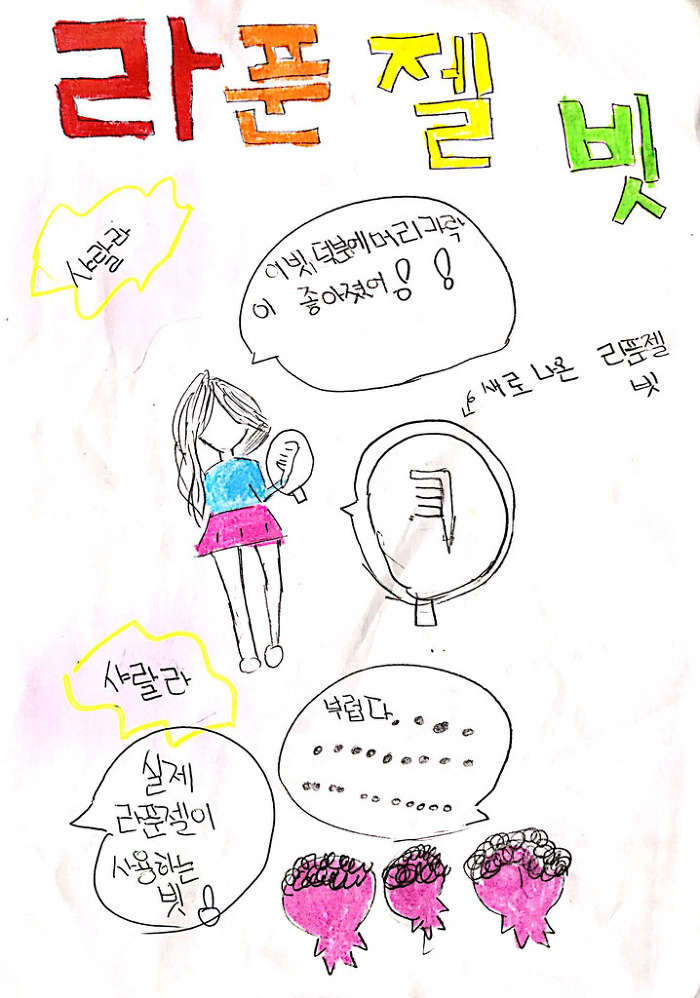 라푼젤 빗
샤랄라
이 빗 덕분에 머리카락
이 좋아졌어!!
새로 나온 라푼젤
빗
샤랄라
부럽다. . . .
실제
라푼젤이
사용하는
빗!